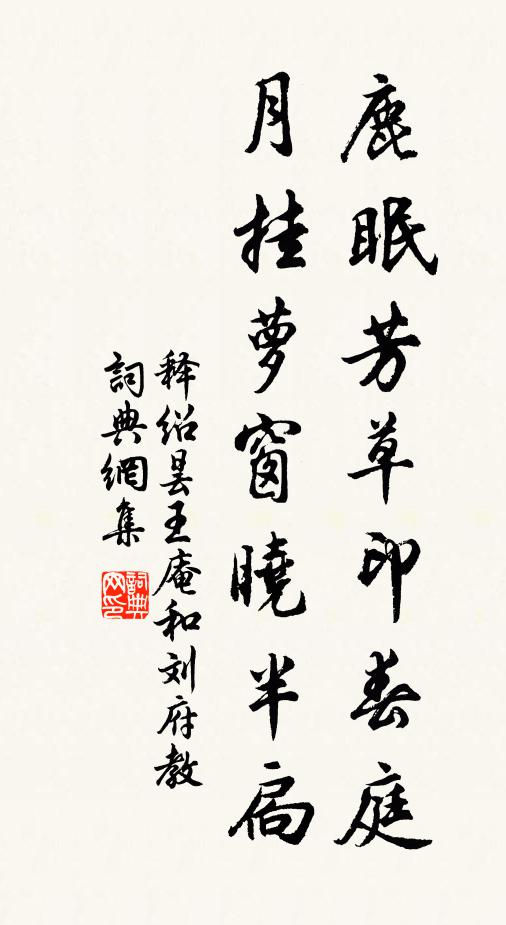 鹿眠芳草印春庭
月挂萝窗曉半扃
释绍昙王庵和刘府教
詞典網集
詞典网印